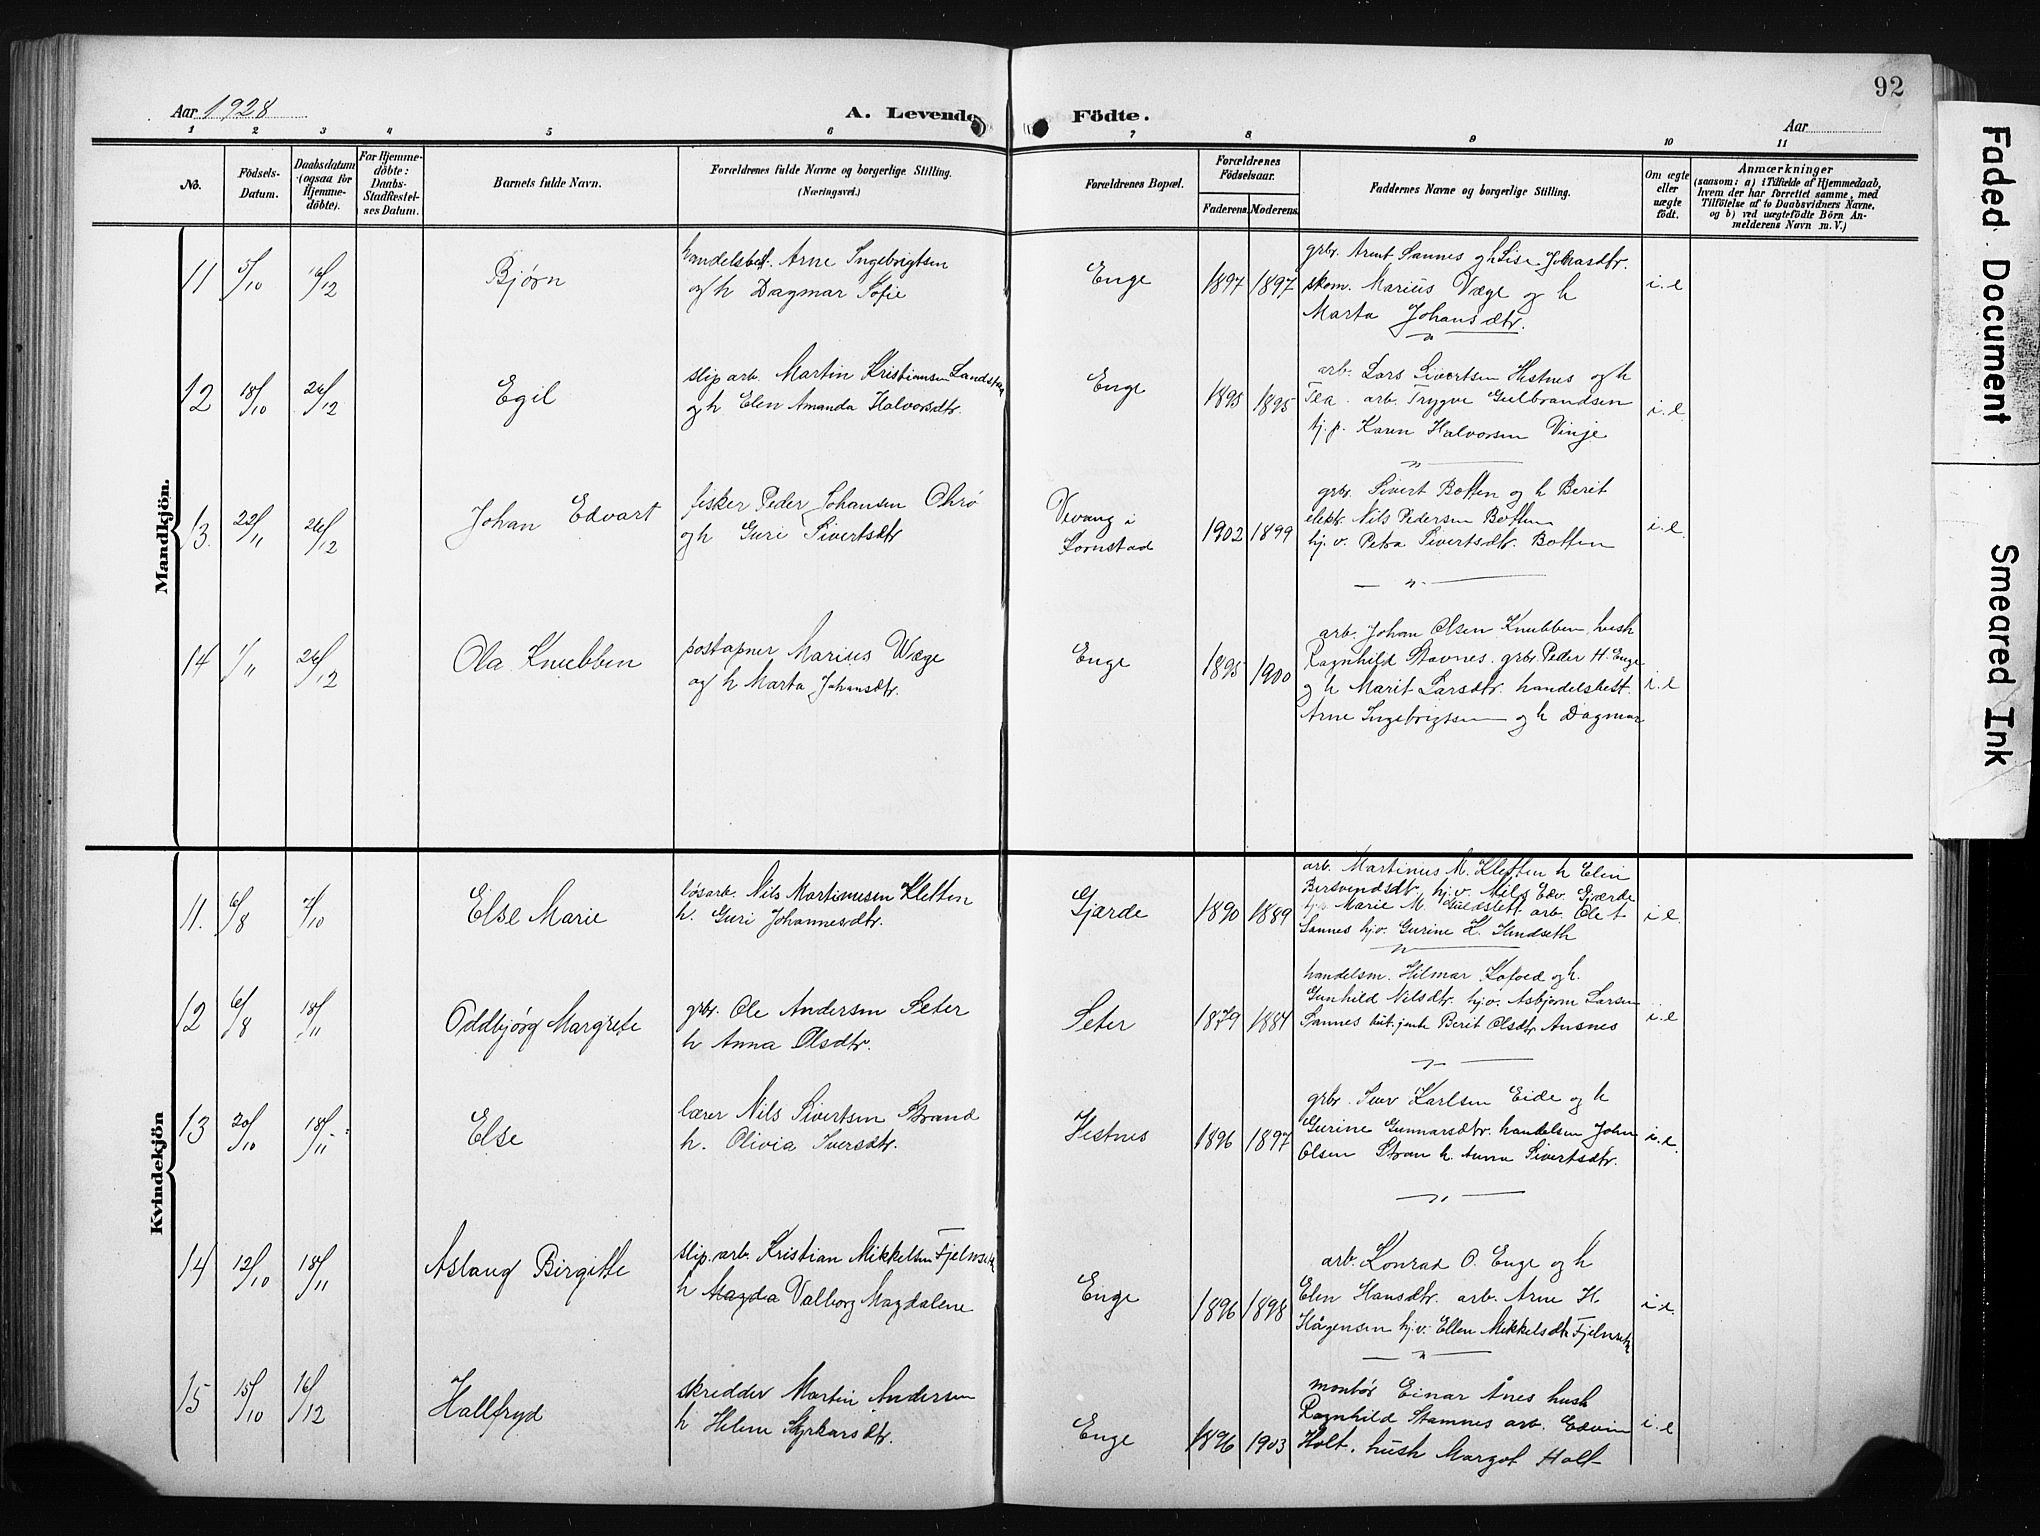 92
Aar 1928
A. Levende Födte.
Aar
1 2 3 4 5 6 7 8 9 10 11
No.
Födsels-Datum.
Daabsdatum (ogsaa for Hjemme-döbte).
For Hjemme-döbte: Daabs-Stadfæstel-ses Datum.
Barnets fulde Navn.
Forældrenes fulde Navne og borgerlige Stilling. (Næringsvei.)
Forældrenes Bopæl.
Forældrenes Födselsaar.
Faderens. Moderens.
Faddernes Navne og borgerlige Stilling.
Om ægte eller uægte födt.
Anmærkninger
(saasom: a) i Tilfælde af Hjemmedaab,
hvem der har forrettet samme, med
Tilföielse af to Daabsvidners Navne,
og b) ved uægtefödte Börn An-
melderens Navn m. V.)
Mandkjön.
11 5/10 16/12 Bjørn
handelsbest. Arne Ingebrigtsen
og h Dagmar Sofie
Enge 1897 1897
grbr. Arent Sannes og h Lise
skom. Marius Væge og h
Marta Johansdtr.
i.e
12 18/10 26/12 Egil
slip arb. Martin Kristiansen
og h Elen Amanda Halvorsdtr.
Enge 1895 1895
arb. Lars Sivertsen Hestnes og h
Tea. arb. Trygve Gulbrandsen
tj.p. Karen Halvorsen Vinje
i.e
13. 22/11 26/12 Johan Edvart
fisker Peder Johansen
og h Guri Sivertsdtr
Vevang i Kornstad 1902 1899
grbr. Sivert Botten og h Berit
elektr. Nils Pedersen Botten
hj.v. Petra Sivertsdtr. Botten
i.e.
14 1/11 26/12 Ola Knubben
postapner Marius Wæge
og h Marta Johansdtr.
Enge 1895 1900
arb. Johan Olsen Knubben, hush
Ragnhild Stavnes. grbr. Peder H. Enge
og h Marit Larsdtr. handelsbest.
Arne Ingebrigtsen og h Dagmar
i.e
Kvindekjön
11. 6/8 7/10 Else Marie
løsarb. Nils Martinussen Kletten
h. Guri Johannesdtr.
Gjærde 1890 1889
arb. Martinius M. Kletten h Elin
Bersvendsdtr, hj.v. Nils Edv. Gjærde
Marie M. arb. Ole
Sannes hj.v. Gurine K. Hendseth
i.e.
12 6/8 18/11 Oddbjørg Margrete
grbr. Ole Andersen Seter
h Anna Olsdtr.
Seter 1879 1884
handelsm. Hilmar Kofoed og h.
Gunhild Nilsdtr. hj.v. Asbjørn Larsen
Sannes Berit Olsdtr. Ausnes
i.e
13 20/10 18/11 Else
lærer Nils Sivertsen Strand
h. Olivia Iversdtr.
Hestnes 1896 1897
grbr. Iver Karlsen Eide og h
Gurine Gunnarsdtr. handelsm John
Olsen h. Anna Sivertsdtr.
i.e.
14 12/10 18/11 Aslaug Birgitte
slip. arb. Kristian Mikkelsen Fjelnseth
h Magda Valborg Magdalene
Enge 1896 1898
arb. Konrad O. Enge og h
Elen Hansdtr. arb. Arne H.
Hågensen hj.v. Ellen Mikkelsdtr Fjelnseth
i.e.
15 15/10 16/12 Hallfryd
skredder Martin Andersen
h Helene Styrkarsdtr.
Enge 1896 1903
montør Einar Ånes hush
Ragnhild Stamnes arb. Edvin
Holt. hush Margot Holt
i.e
Faded Document Smeared Ink